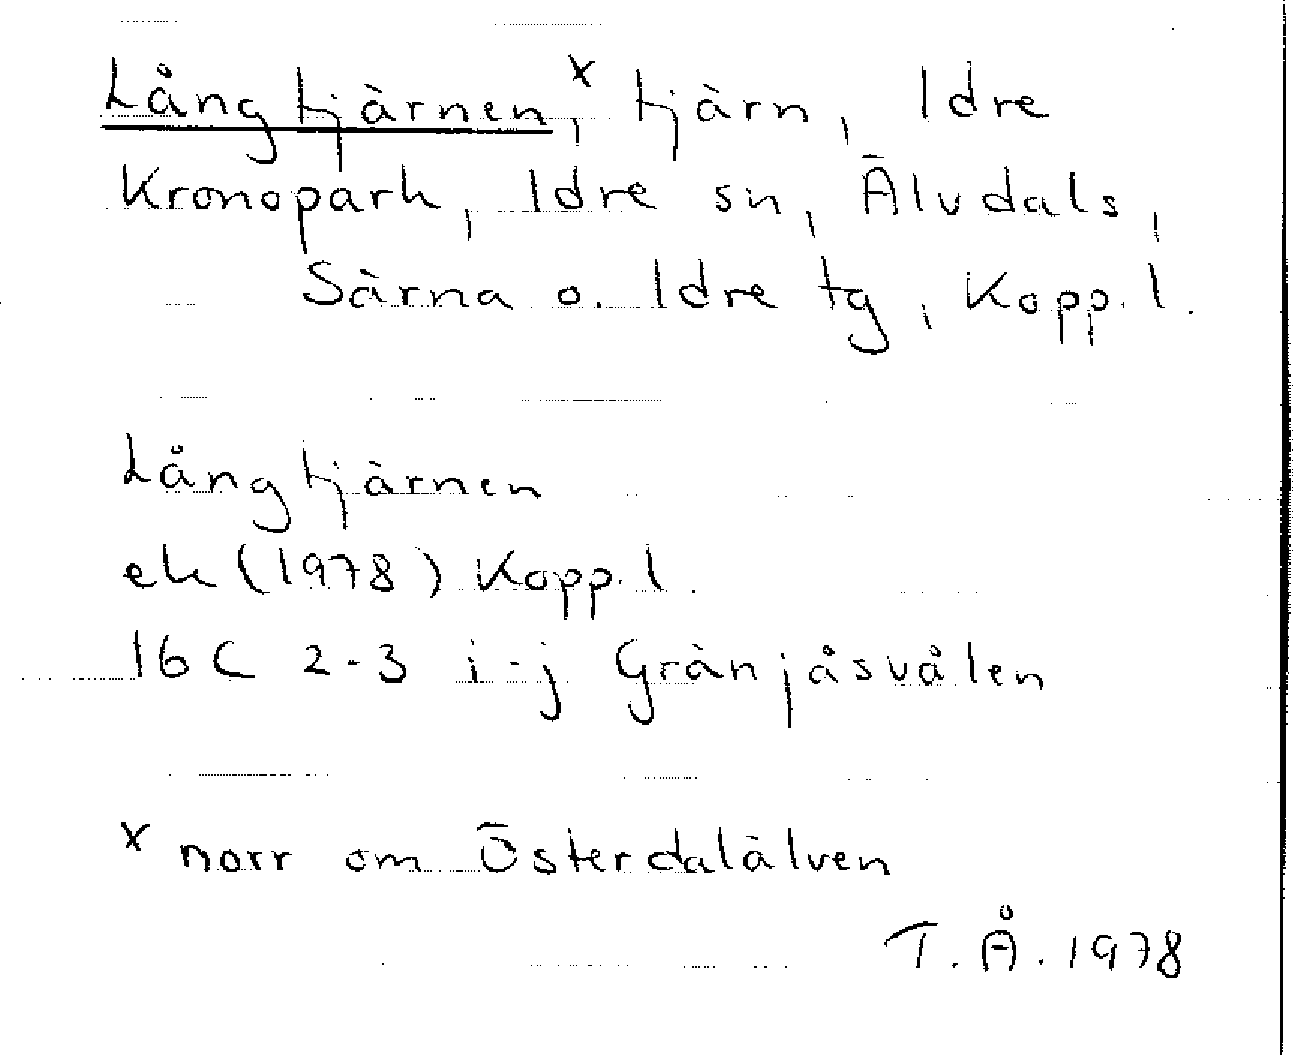 Långtjärnen,ˣ tjärn, Idre
Kronopark, Idre sn, Älvdals,
Särna o. Idre tg, Kopp. l.
Långtjärnen
ek (1978) Kopp. l.
16 C 2-3 i-j Gränjåsvålen
x norr om Österdalälven
T. Å. 1978